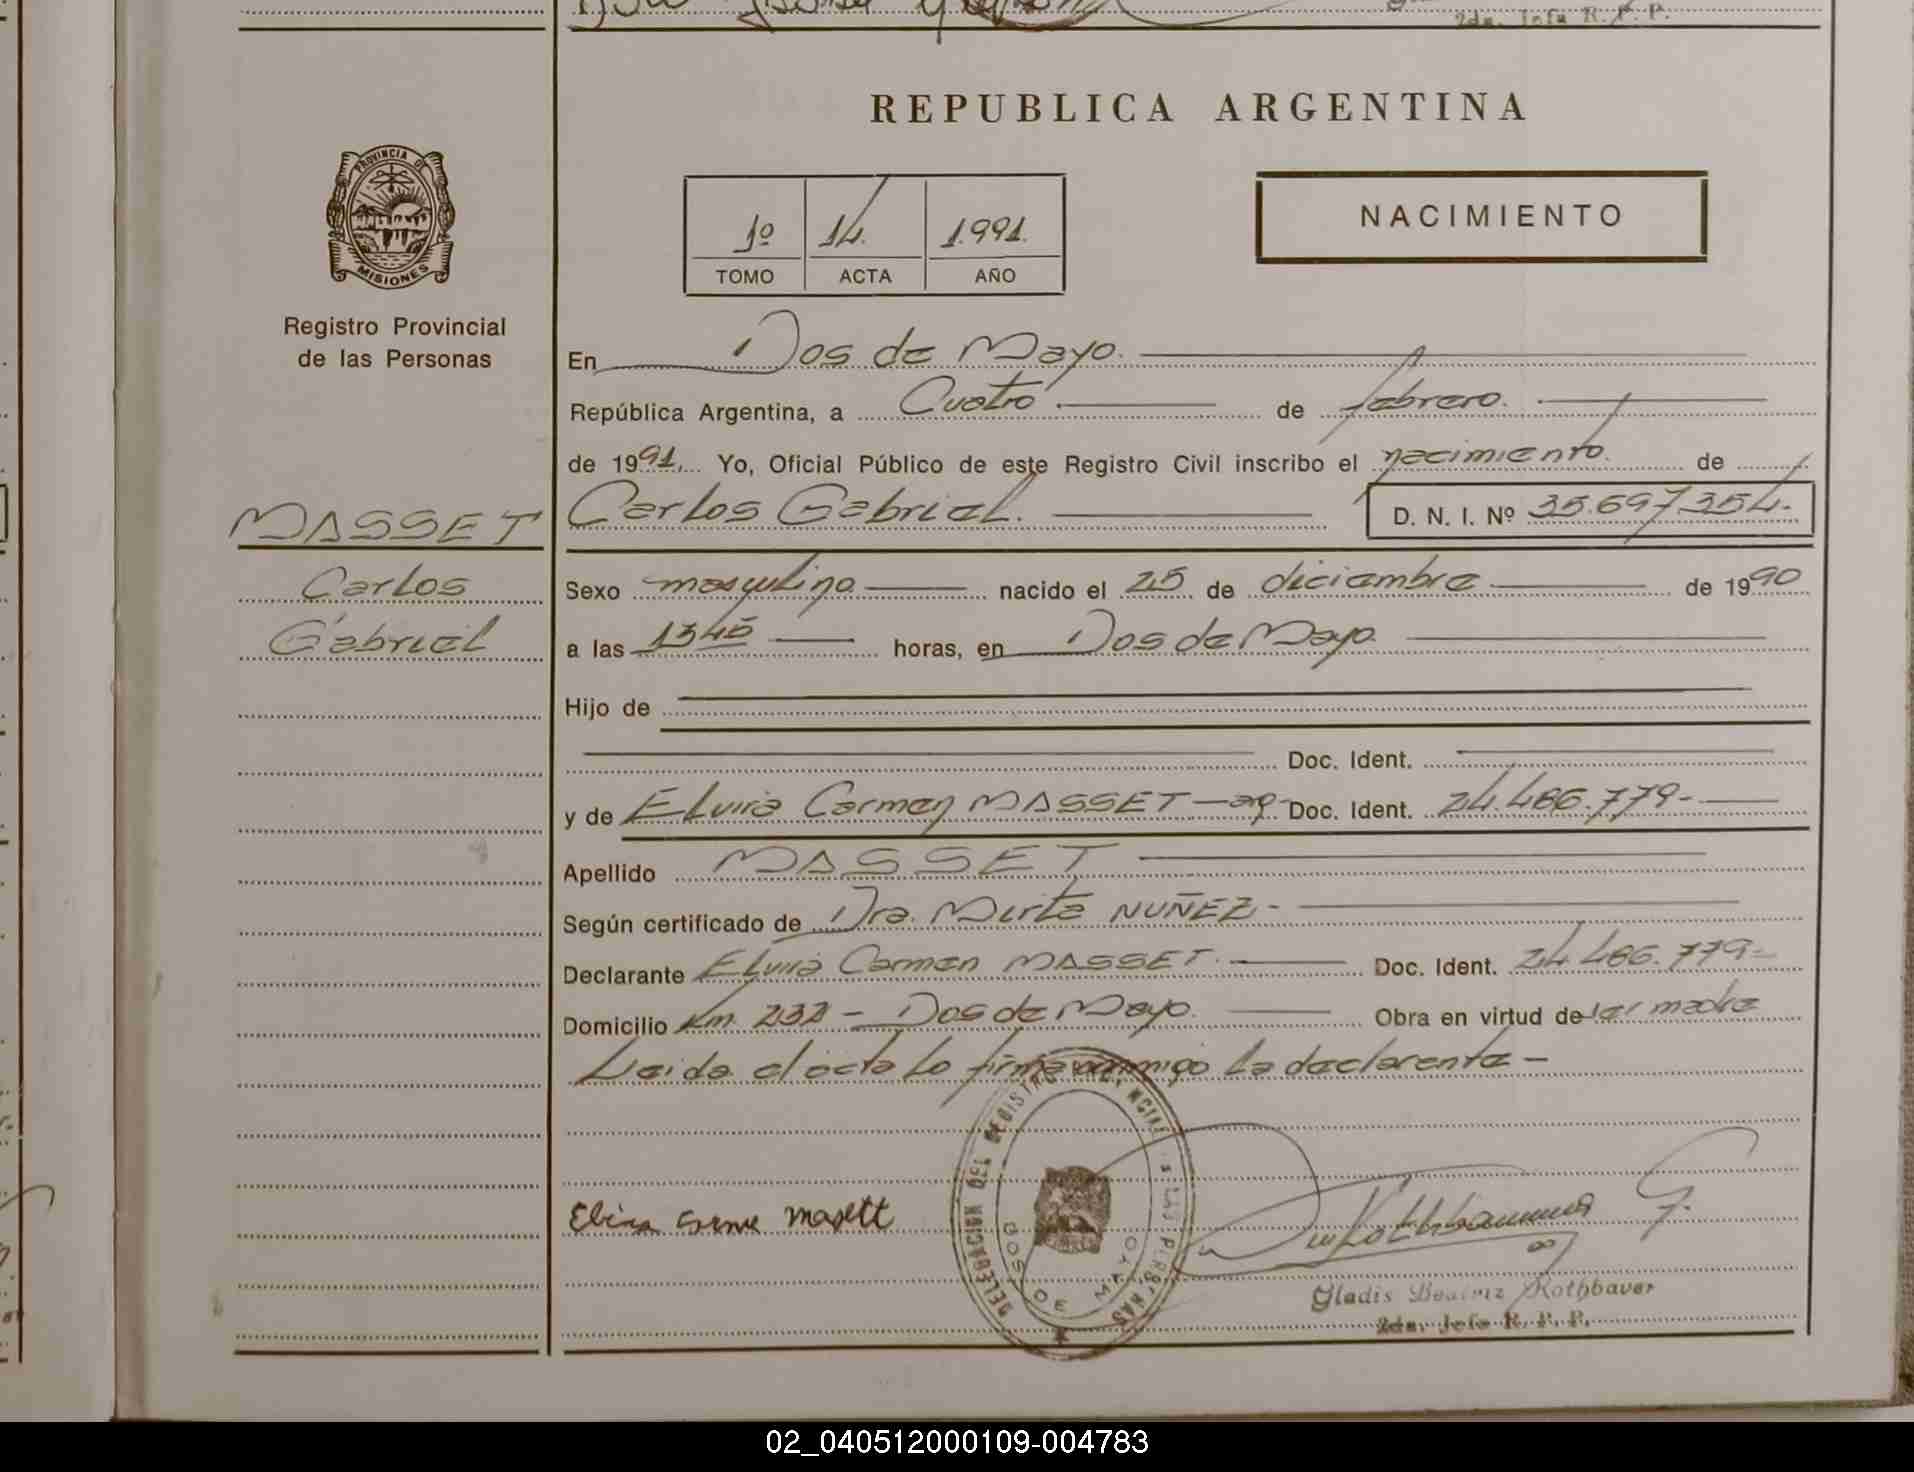 2da. Jefa R. P. P.
REPUBLICA ARGENTINA
PROVINCIA DE
MISIONES
Registro Provincial
de las Personas
1º 14. 1.991.
TOMO ACTA AÑO
NACIMIENTO
En Dos de Mayo.
República Argentina, a Cuatro de febrero.
de 1991. Yo, Oficial Público de este Registro Civil inscribo el nacimiento de
MASSET
Carlos Gabriel. D. N. I. Nº 35.697.354.-
Carlos
Gabriel
Sexo masculino nacido el 25 de diciembre de 1990
a las 1345 horas, en Dos de Mayo.
Hijo de
Doc. Ident.
y de Elvira Carmen MASSET - arg- Doc. Ident. 24.486.779-
Apellido MASSET
Según certificado de Dra. Mirta NUÑEZ-
Declarante Elvira Carmen MASSET. Doc. Ident. 24.486.779-
Domicilio Km 232 - Dos de Mayo. Obra en virtud de ser madre
Leida el acta lo firma conmigo la declarente-
DELEGACION DEL REGISTRO DE LAS PERSONAS
DOS DE MAYO
Gladis Beatriz Rothbauer
2da. Jefa R. P. P.
02_040512000109-004783